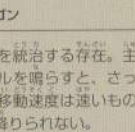 ゴン
を統治する存在。主
ルを鳴らすと、さっ
移動速度は速いもの
降りられない。